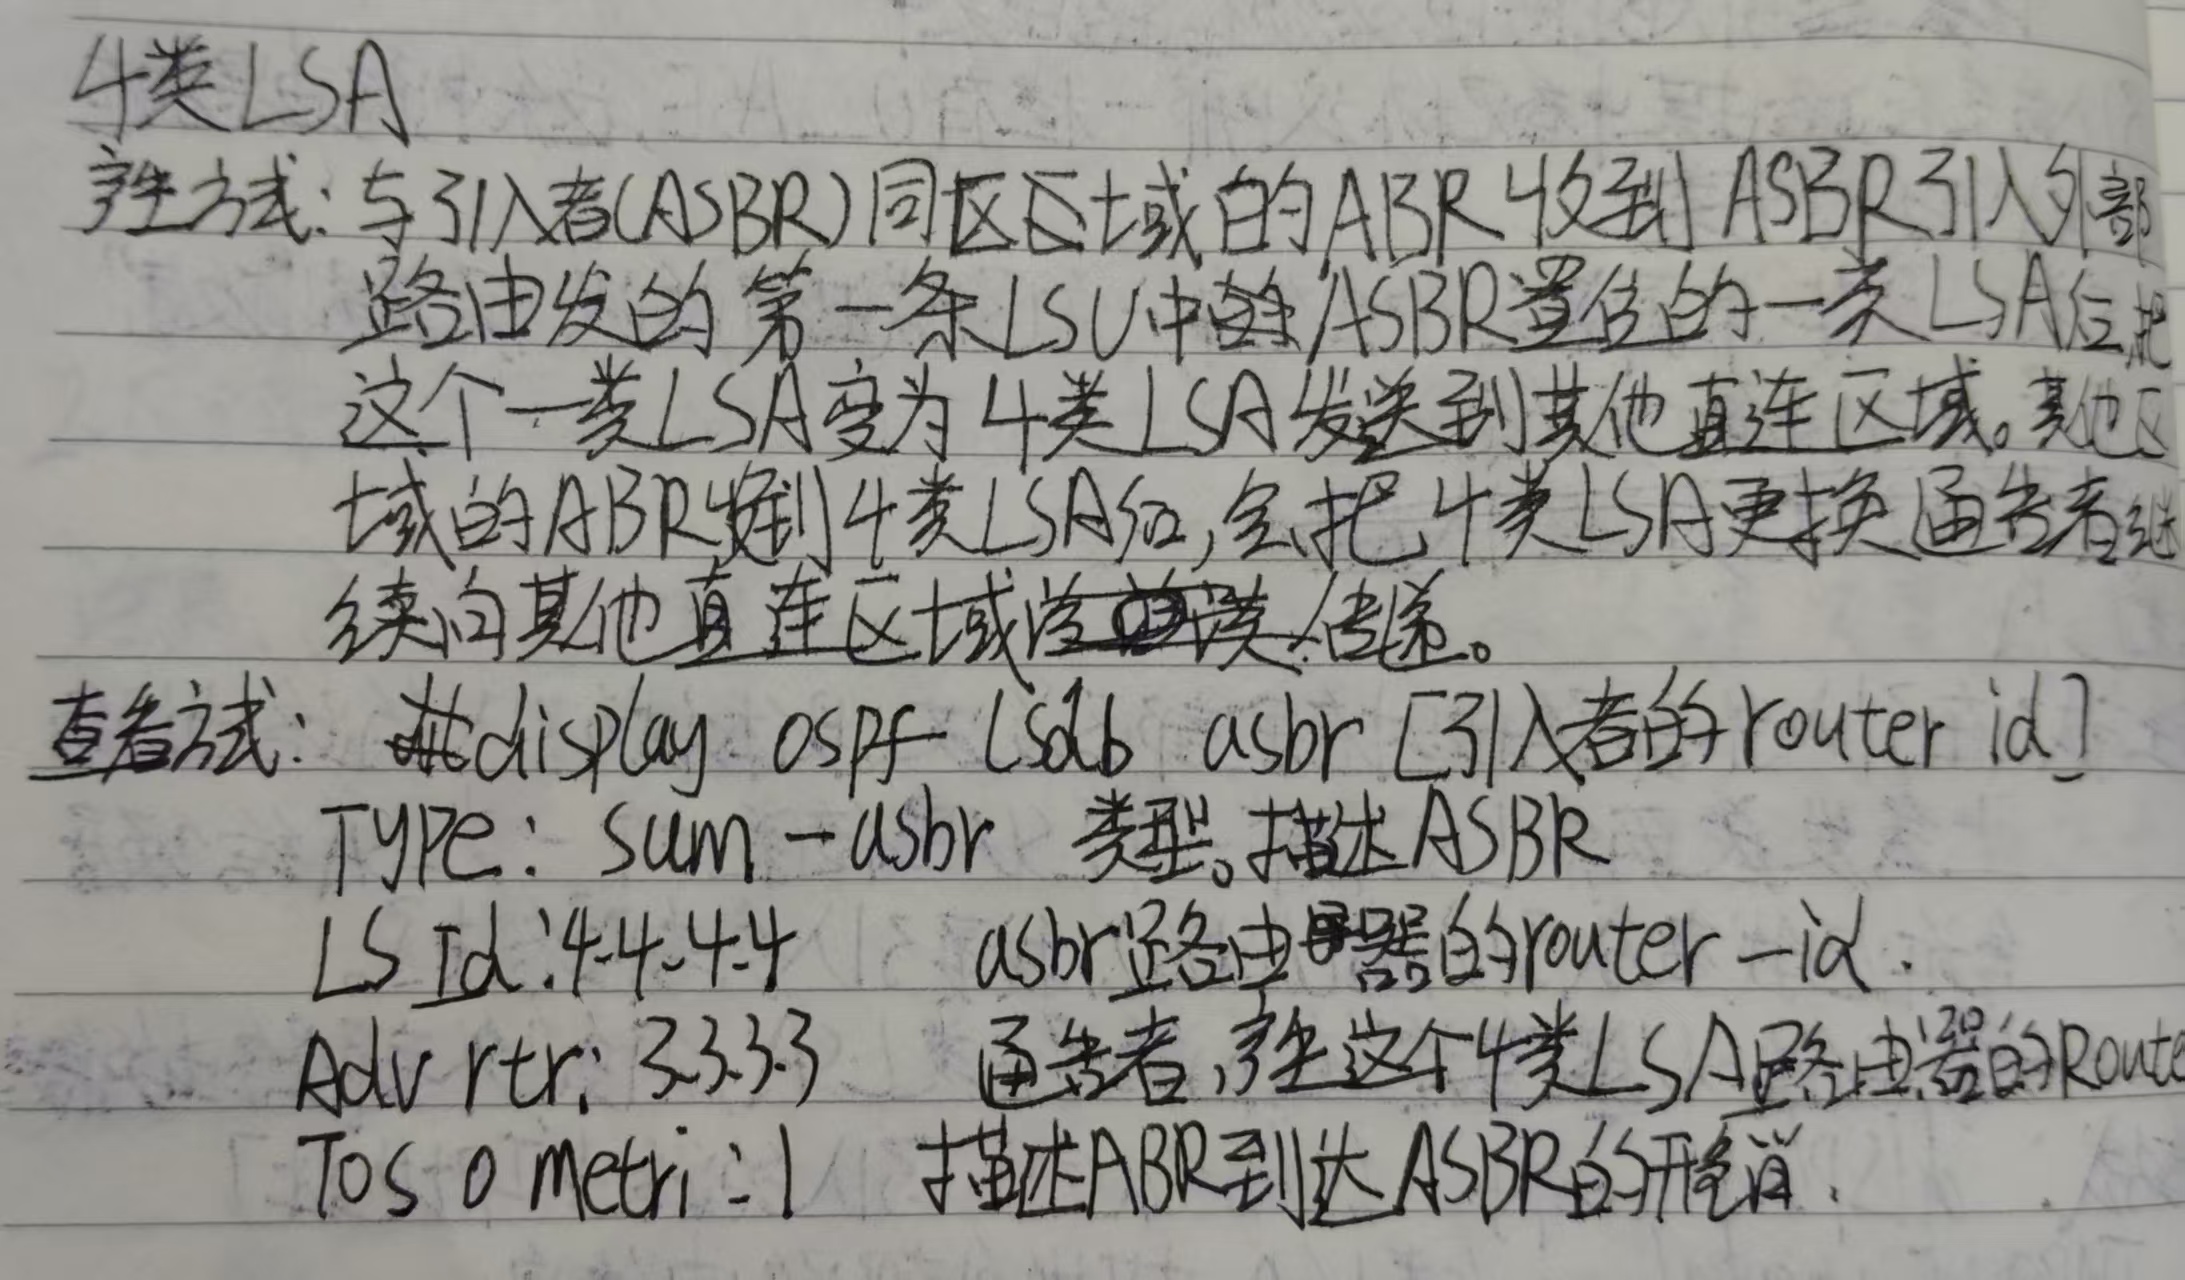 4类LSA
产生方式：与引入者(ASBR)同区区域的ABR收到ASBR引入外部
路由发的第一条LSU中的ASBR置位的一类LSA后,把
这个一类LSA变为4类LSA发送到其他直连区域。其他区
域的ABR收到4类LSA后,会把4类LSA更换通告者继
续向其他直连区域传递。
查看方式： #display ospf lsdb asbr [引入者的router id]
TYPE: sum-asbr 类型。描述ASBR
LS Id:4.4.4.4 asbr路由器的router-id.
Adv rtr: 3.3.3.3 通告者,产生这个4类LSA路由器的Route
Tos 0 metri:1 描述ABR到达ASBR的开销.